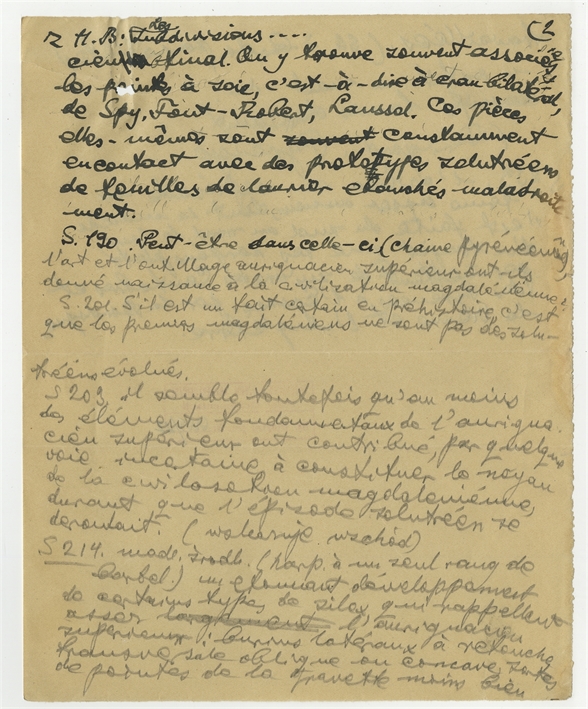 (2
Z H.B: Les Subdivisions....
cien final. On y trouve souvent associées
les pointes à soie, c'est-à-dire à cran bilatéral,
de Spy, Font-Robert, Laussel. Ces pièces
elles-mêmes sont souvent constamment
en contact avec des prototypes solutréens
de feuilles de laurier ébauchés maladroite
ment.
S. 190. Peut-être dans celle-ci (chaine pyrénéenne)
l'art et l'outillage aurignacien supérieur ont-ils
donné naissance à la civilization magdalénienne?
S. 201. S'il est un fait certain en préhistoire c'est
que les premiers magdaléniens ne sont pas des solu-
tréens évolués.
S 203, il semble toutefois qu'au moins
des éléments fondamentaux de l'aurigna
cien supérieur ont contribué par quelque
voie incertaine à constituer le noyau
de la civilisation magdalénienne,
durant que l'épisode solutréen se
deroulait. (wskazuje wschód)
S 214. madl. środk. (harp. à un seul rang de
barbel.) un étonnant développement
de certains types de silex qui rappellent
assez l'aurignacien
supérieur: burins latéraux à retouche
transversale oblique ou concave, sortes
de pointes de la Gravette moins bien